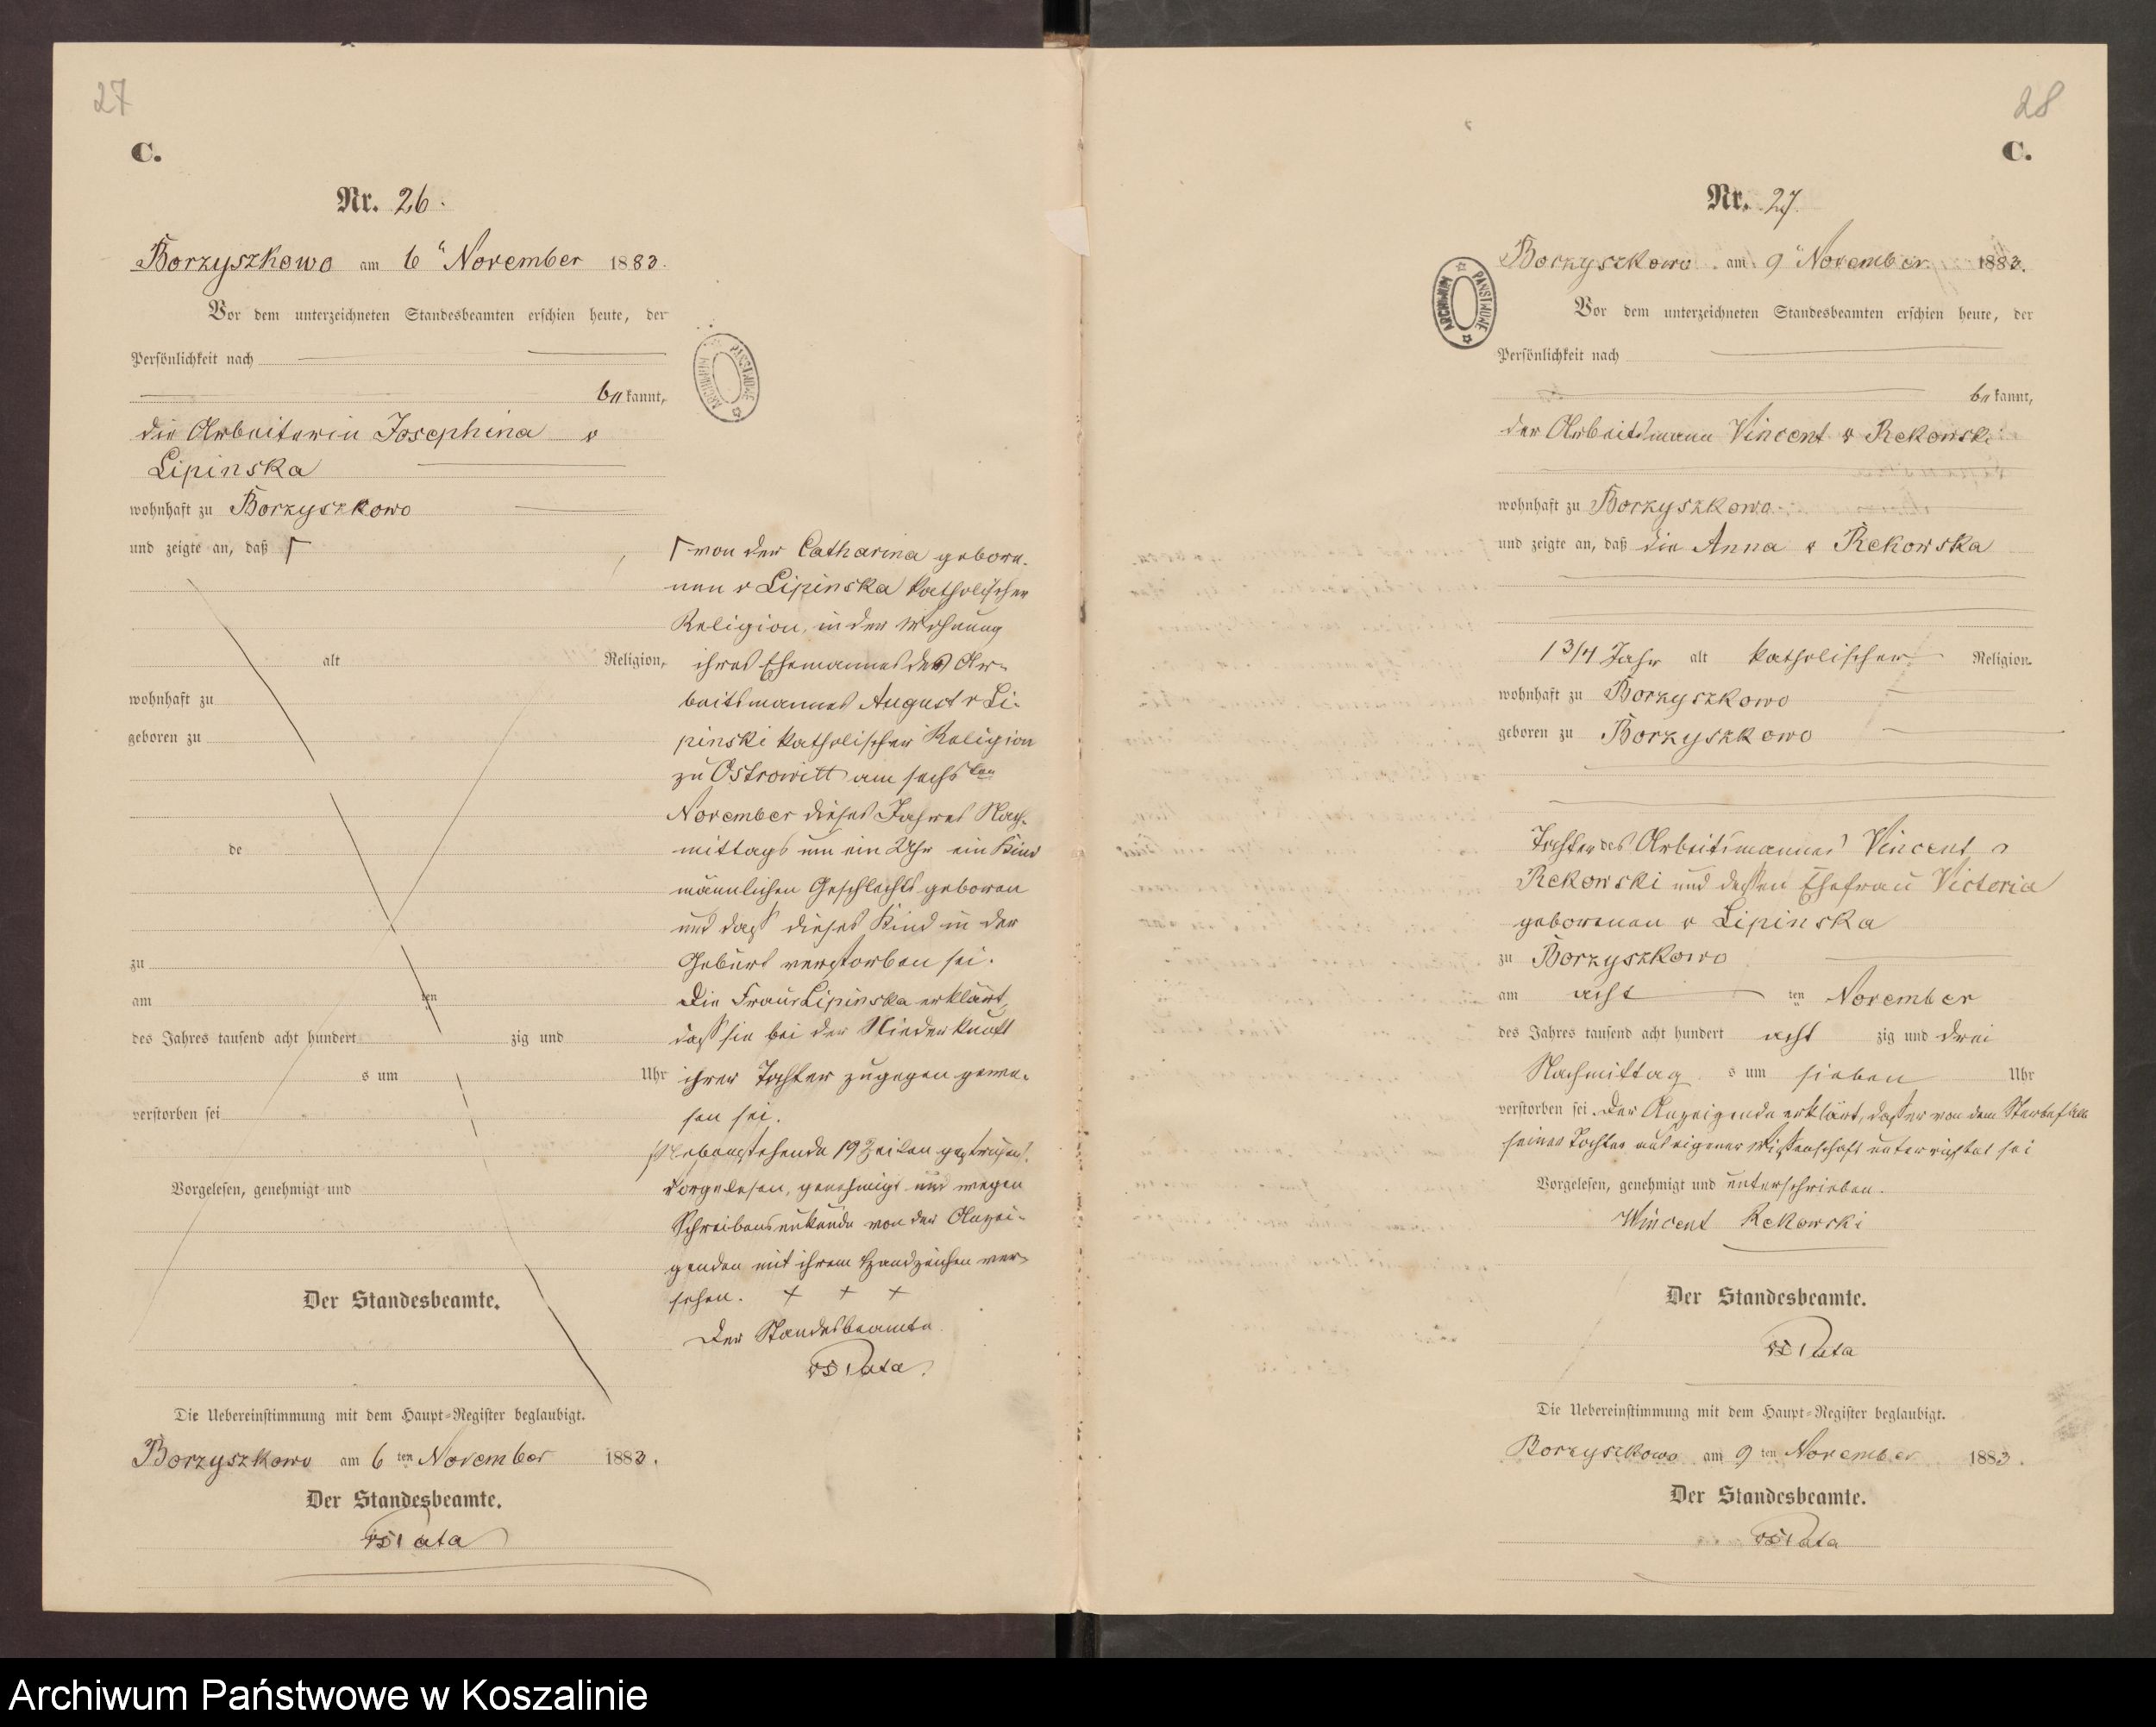 27
C.
Nr. 26.
Borzyszkowo am 6" November 1883.
Vor dem unterzeichneten Standesbeamten erschien heute, der
Persönlichkeit nach
bekannt,
die Arbeiterin Josephina v
Lipinska
wohnhaft zu Borzyszkowo
und zeigte an, daß Γ
alt Religion,
wohnhaft zu
geboren zu
de
zu
am ten
des Jahres tausend acht hundert zig und
s um Uhr
verstorben sei
Vorgelesen, genehmigt und
Der Standesbeamte.
Γ von der Catharina gebore-
nen v Lipinska katholischer
Religion, in der Wohnung
ihres Ehemannes des Ar-
beitsmannes August v Li-
pinski katholischer Religion
zu Ostrowitt am sechsten
November dieses Jahres Nach-
mittags um ein Uhr ein Kind
männlichen Geschlechts geboren
und daß dieses Kind in der
Geburt verstorben sei.
Die Frau v Lipinska erklärt,
daß sie bei der Niederkunft
ihrer Tochter zugegen gewe-
sen sei.
Nebenstehende 19 Zeilen gestrichen.
Vorgelesen, genehmigt und wegen
Schreibensunkunde von der Anzei-
genden mit ihrem Handzeichen ver-
sehen. + + +
Der Standesbeamte
Die Uebereinstimmung mit dem Haupt-Register beglaubigt.
Borzyszkowo am 6 ten November 1883.
Der Standesbeamte.
ARCHIWUM PAŃSTWOWE
28
C.
Nr. 27.
Borzyszkowo am 9" November 1883.
Vor dem unterzeichneten Standesbeamten erschien heute, der
Persönlichkeit nach
bekannt,
der Arbeitsmann Vincent v Rekowski
wohnhaft zu Borzyszkowo
und zeigte an, daß die Anna v Rekowska
1 3/4 Jahr alt katholischer Religion
wohnhaft zu Borzyszkowo
geboren zu Borzyszkowo
Tochter des Arbeitsmannes Vincent v
Rekowski und dessen Ehefrau Victoria
geborenen v Lipinska
zu Borzyszkowo
am acht ten November
des Jahres tausend acht hundert acht zig und drei
Nachmittag s um sieben Uhr
verstorben sei Der Anzeigende erklärt, daß er von dem Sterbefalle
seiner Tochter aus eigener Wissenschaft unterrichtet sei
Vorgelesen, genehmigt und unterschrieben.
Wincent Rekowski
Der Standesbeamte.
Die Uebereinstimmung mit dem Haupt-Register beglaubigt.
Borzyszkowo am 9 ten November 1883.
Der Standesbeamte.
ARCHIWUM PAŃSTWOWE
Archiwum Państwowe w Koszalinie